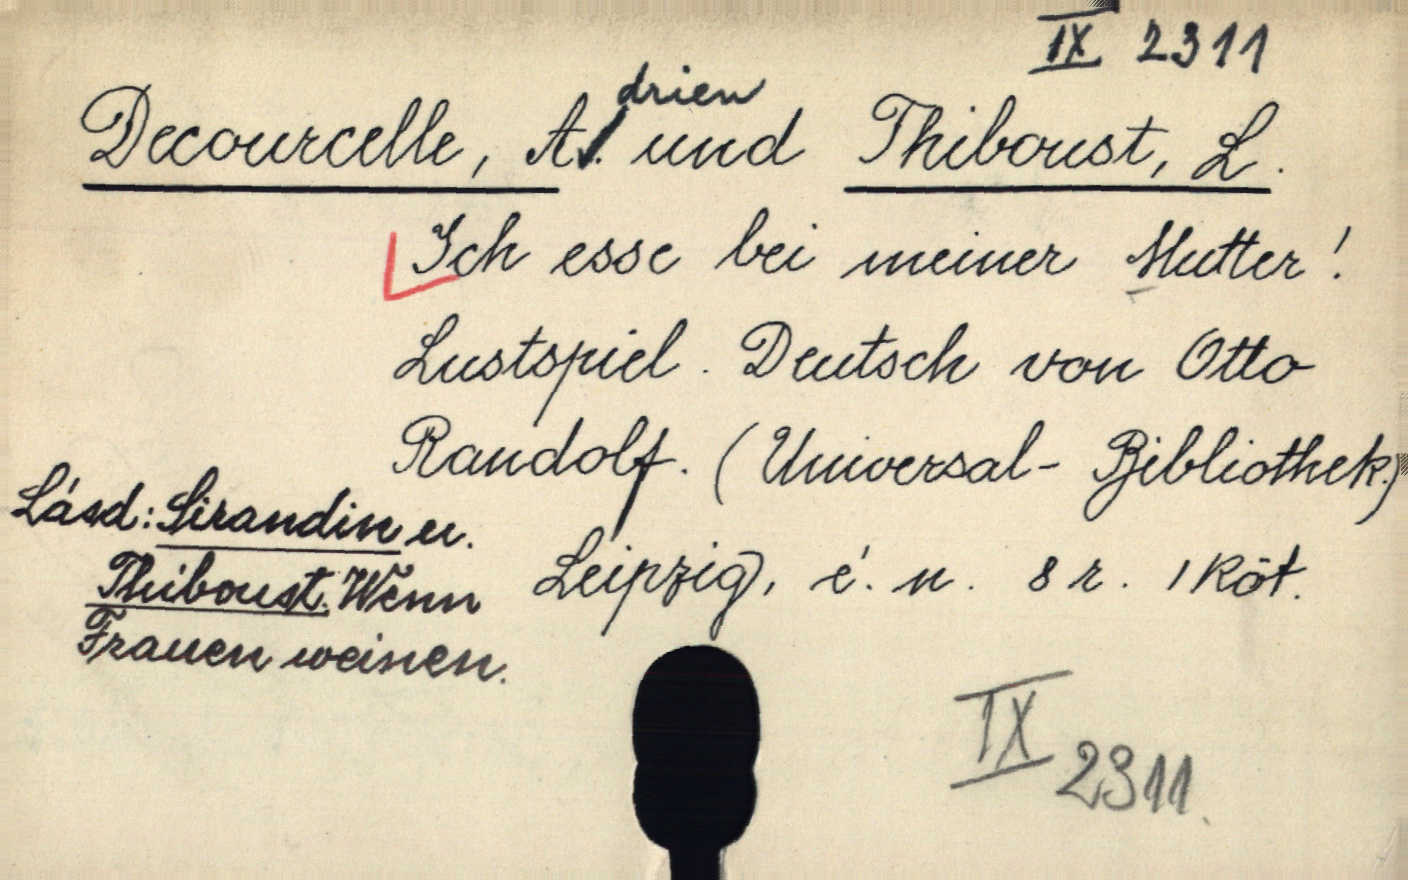 IX 2311
Decourcelle, Adrien und Thiboust, L.
Ich esse bei meiner Mutter!
Lustspiel. Deutsch von Otto
Randolf. (Universal-Bibliothek.)
Leipzig, é. n. 8 r. 1 köt.
Lásd: Sirandin u.
Thiboust. Wenn
Frauen weinen.
IX 2311.